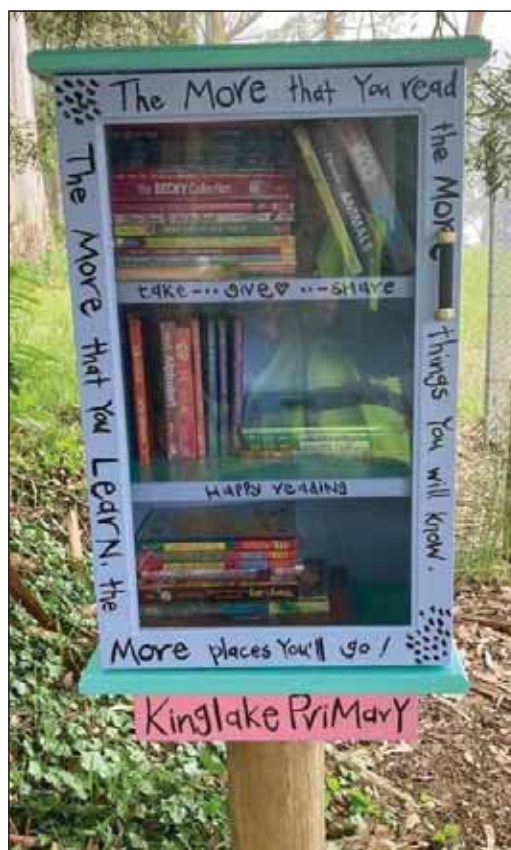 The More that You read
the More things You will know.
The More that You LearN, the
More places You'll go!
The BECKY Collection
ANIMALS
take --- give ♡ --- share
Happy reading
Kinglake PriMarY